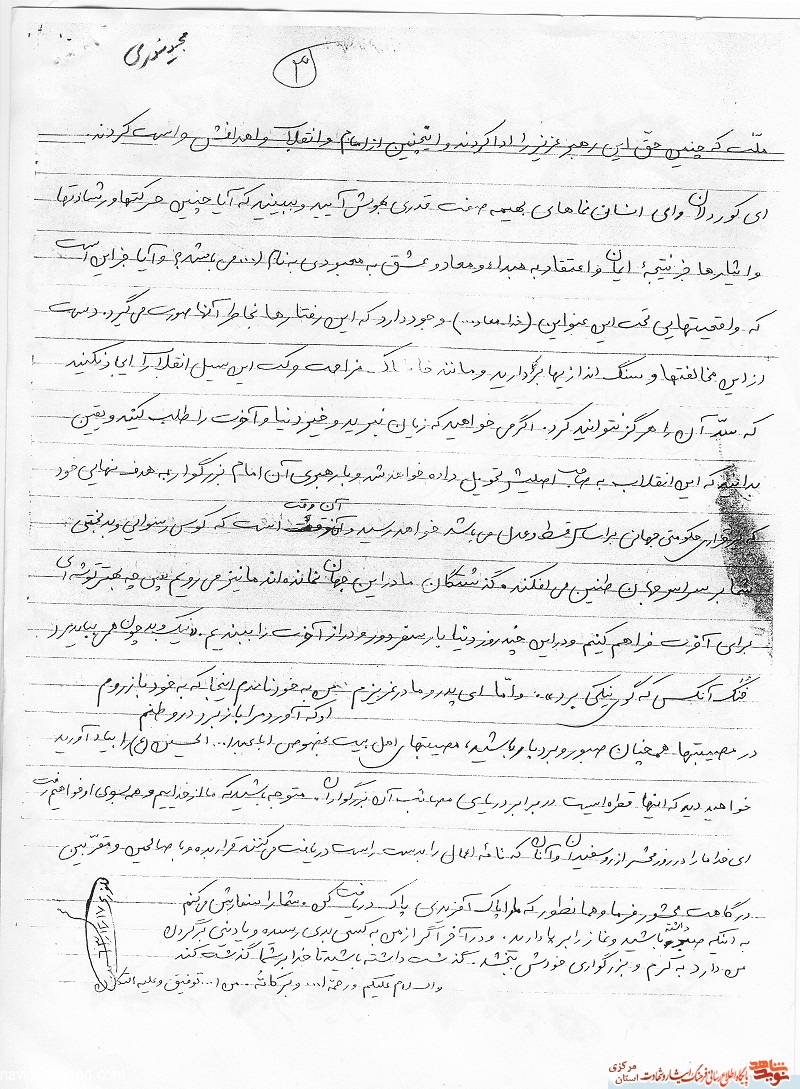 مجید نوری
۳
ملّت که چنین حقّ این رهبر عزیز را ادا کردند و اینچنین از امام و انقلاب و اهدافش حراست کردند.
ای کوردلان و ای انسان نماهای بهیمه صفت قدری بهوش آیید و ببینید که آیا چنین حرکتها و رشادتها
و ایثارها جز نتیجهٔ ایمان و اعتقاد به مبداء و معاد و عشق به معبودی به نام ا... می باشد؟ و آیا جز این است
که واقعیتهایی تحت این عنواین (خدا، معاد...) وجود دارد که این رفتارها بخاطر آنها صورت می گیرد. دست
از این مخالفتها و سنگ اندازیها بردارید و مانند خاشاک مزاحمت حرکت این سیل انقلاب را ایجاد نکنید
که سدّ آن را هرگز نتوانید کرد. اگر می خواهید که زیان نبرید و خیر دنیا و آخرت را طلب کنید و یقین
بدانید که این انقلاب به صاحب اصلیش تحویل داده خواهد شد و با رهبری آن امام بزرگوار به هدف نهایی خود
که برقراری حکومتی جهانی بر اساس قسط و عدل می باشد خواهد رسید و آن وقت است که کوس رسوایی و بدبختی
شما بر سراسر جهان طنین می افکند و گذشتگان ما در این جهان نمانده اند ما نیز می رویم پس چه بهتر توشه ای
برای آخرت فراهم کنیم و در این چند روز دنیا بار سفر دور و دراز آخرت را ببندیم. «نیک و بد چون همی بباید مرد
خُنُک آنکس که گوی نیکی برد». و امّا ای پدر و مادر عزیزم من به خود نامدم اینجا که به خود باز روم
او که آورد مرا باز برد در وطنم
در مصیبتها همچنان صبور و بردبار باشید، مصیبتهای اهل بیت بخصوص اباعبدا... الحسین (ع) را بیاد آورید
خواهید دید که اینها قطره ایست در برابر دریای مصائب آن بزرگواران. متوجه باشید که ما از خداییم و همه بسوی او خواهیم رفت
ای خدا ما را در روز محشر از روسفیدان و آنان که نامه اعمال را بدست راست دریافت می کنند قرار بده و با صالحین و مقرّبین
درگاهت محشور فرما و همانطور که ما را پاک آفریدی پاک دریافت کن و شما را سفارش می کنم
به اینکه صبر داشته باشید و نماز را بر پا دارید. و در آخر اگر از من به کسی بدی رسیده و یا دینی بر گردن
من دارد به کرم و بزرگواری خودش ببخشد. گذشت داشته باشید تا خدا بر شما گذشت کند
والسلام علیکم و رحمة ا... و برکاته. من ا... توفیق و علیه التکلان
نوید شاهد
پایگاه اطلاع رسانی فرهنگ ایثار و شهادت استان مرکزی